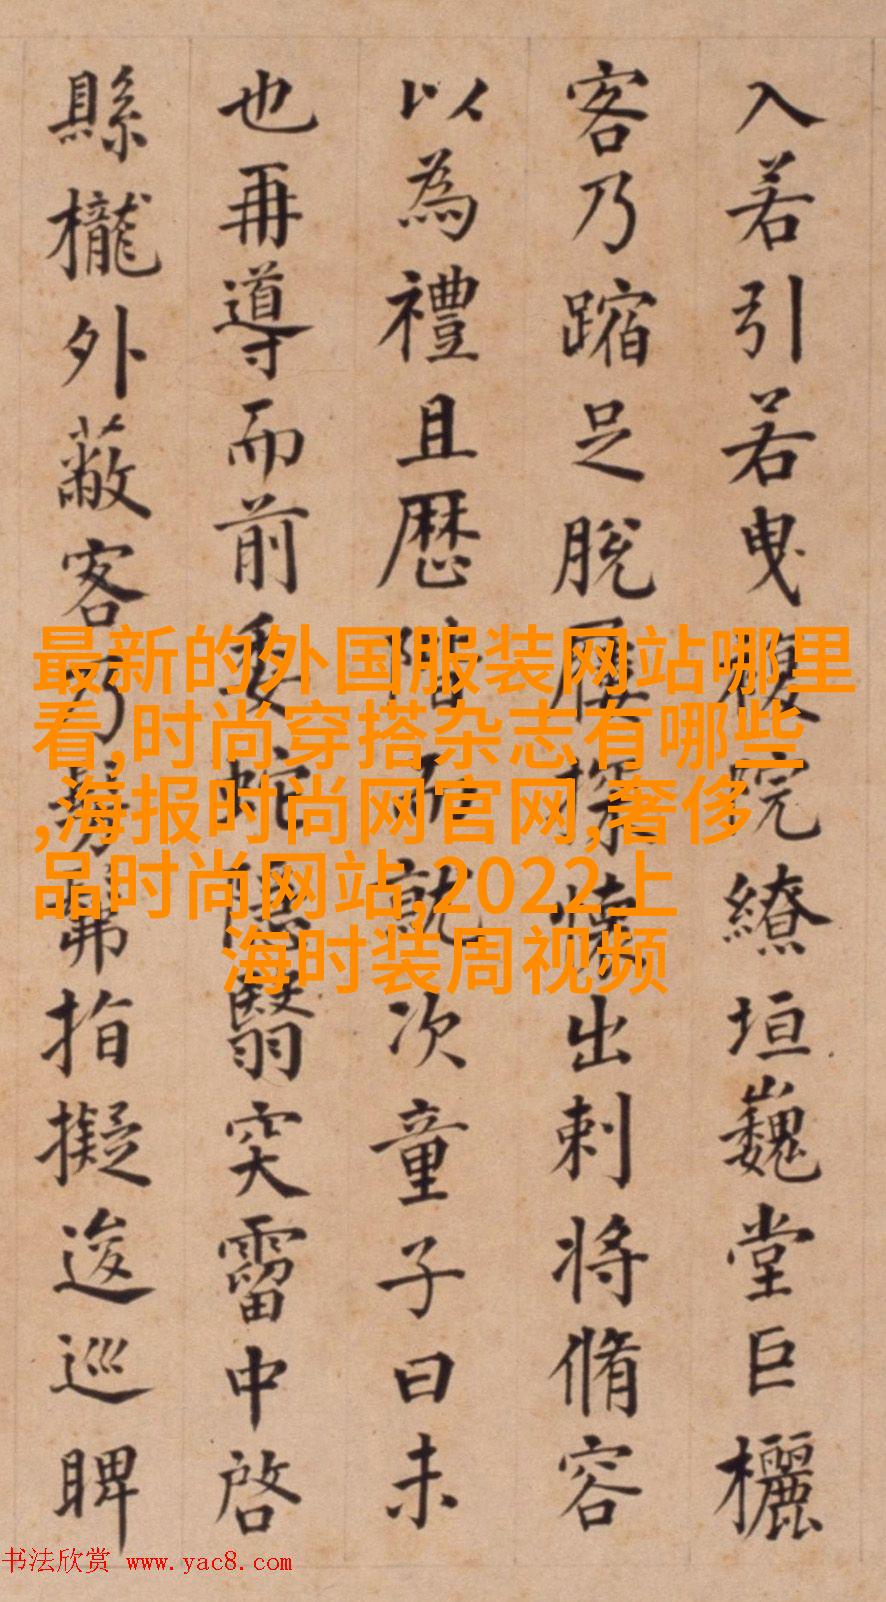 入若引若曳複院繚垣巍堂巨欐
客乃蹜足脫屨探懷出刺將脩容
以為禮且歷階而就次童子曰未
也再導而前委蛇隱翳突霤中啓
縣櫳外蔽客乃髣髴指擬逡巡睥
最新的外国服装网站哪里
看,时尚穿搭杂志有哪些
,海报时尚网官网,奢侈
品时尚网站,2022上
海时装周视频
书法欣赏 www.yac8.com